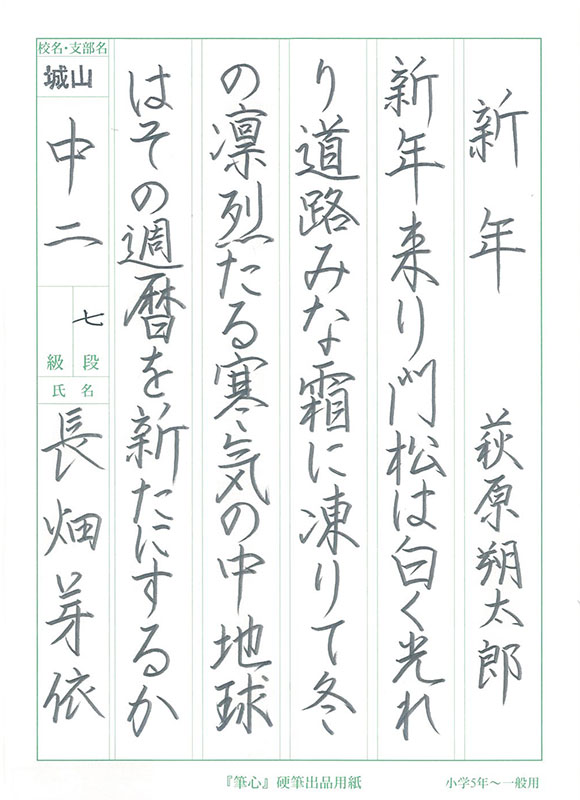 新年 萩原朔太郎
新年来り門松は白く光れ
り道路みな霜に凍りて冬
の凛烈たる寒気の中地球
はその週暦を新たにするか
校名・支部名
城山
中二
七
級 段
氏名
長畑芽依
『筆心』硬筆出品用紙
小学5年〜一般用